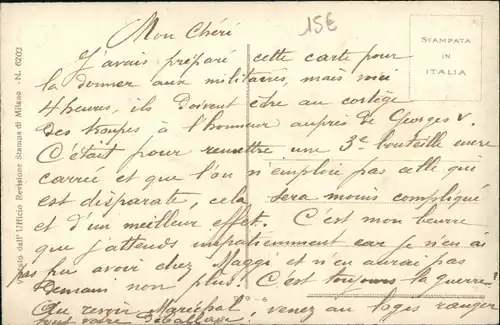 15€
Mon Chéri
STAMPATA
IN
ITALIA
J'avais préparé cette carte pour
la donner aux militaires, mais
4 heures, ils doivent être au cortège
des troupes à l'honneur auprès de Georges V.
C'était pour remettre une 3e bouteille
carrée et que l'on n'emploie pas celle qui
est disparate, cela sera moins compliqué
et d'un meilleur effet. C'est mon beurre
que j'attends impatiemment car je n'en ai
pas pu avoir chez Maggi et n'en aurai pas
demain non plus. C'est toujours la guerre!
Au revoir Maréchal venez au loges ranger
tout votre déballage!
Visitato dall'Ufficio Revisione Stampa di Milano - N. 6203